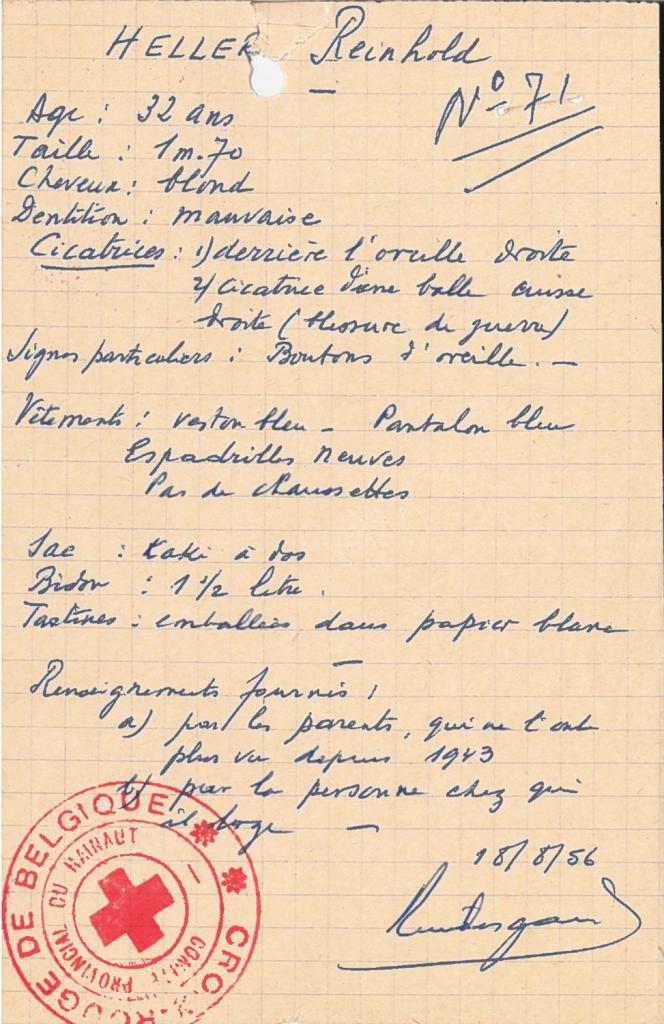 HELLER Reinhold
N° 71
Age : 32 ans
Taille : 1m.70
Cheveux : blond
Dentition : mauvaise
Cicatrices : 1) derrière l'oreille droite
2) cicatrice d'une balle cuisse
droite (blessure de guerre)
Signes particuliers : Boutons d'oreille. —
Vêtements : veston bleu - Pantalon bleu
Espadrilles neuves
Pas de chaussettes
Sac : Kaki à dos
Bidon : 1 1/2 litre.
Tartines : emballées dans papier blanc
Renseignements fournis :
a) par les parents, qui ne l'ont
plus vu depuis 1943
b) par la personne chez qui
il loge —
18/8/56
CROIX-ROUGE DE BELGIQUE
COMITÉ PROVINCIAL DU HAINAUT